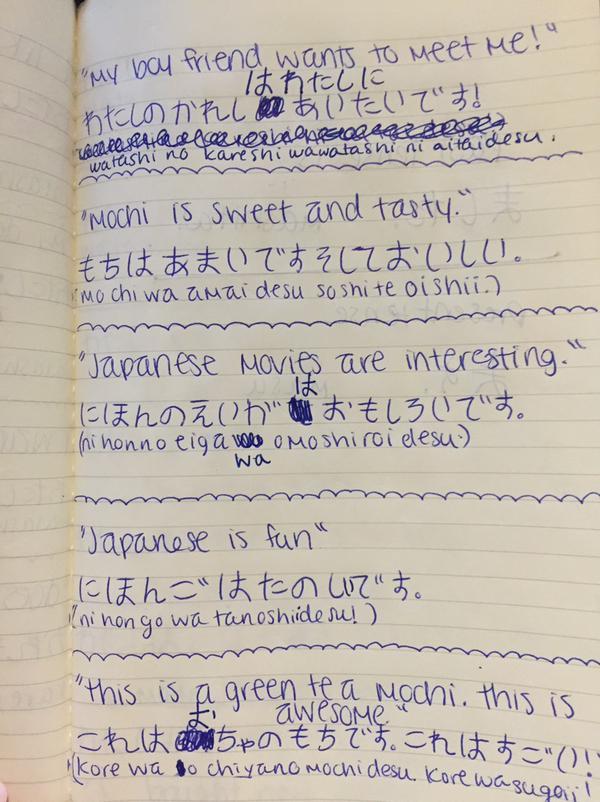 "My boy friend wants to meet me!"
はわたしに
わたしのかれし あいたいです!
watashi no kareshi wawatashi ni aitaidesu.
"Mochi is sweet and tasty."
もちは あまいですそしておいしい。
(mo chi wa amai desu soshite oishii.)
"Japanese movies are interesting."
は
にほんのえいが おもしろいです。
(ni honno eiga omoshiroi desu.)
wa
"Japanese is fun"
にほんごはたのしいです。
(ni hon go wa tanoshiidesu!)
"this is a green tea mochi. this is
お awesome"
これは ちゃのもちです。これはすごい!
(kore wa o chiyano mochi desu. kore wa sugoi!